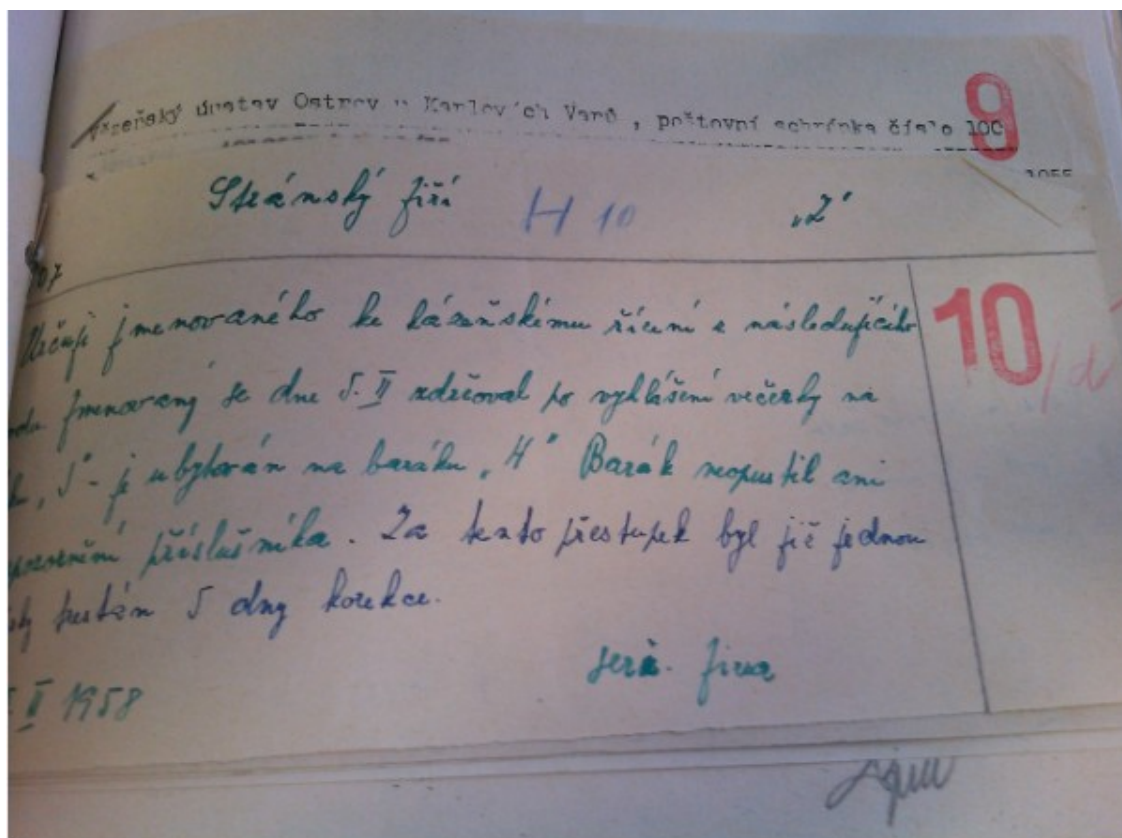 Vězeňský ústav Ostrov u Karlových Varů, poštovní schránka číslo 100
9
1055
Stránský Jiří H 10 „Z"
107
Určuji jmenovaného ke kázeňskému řízení z následujícího
10
jmenovaný se dne 5. II zdržoval po vyhlášení večerky na
„5" - je ubytován na baráku „4" Barák neopustil ani
příslušníka. Za tento přestupek byl již jednou
5 dny korekce.
II 1958